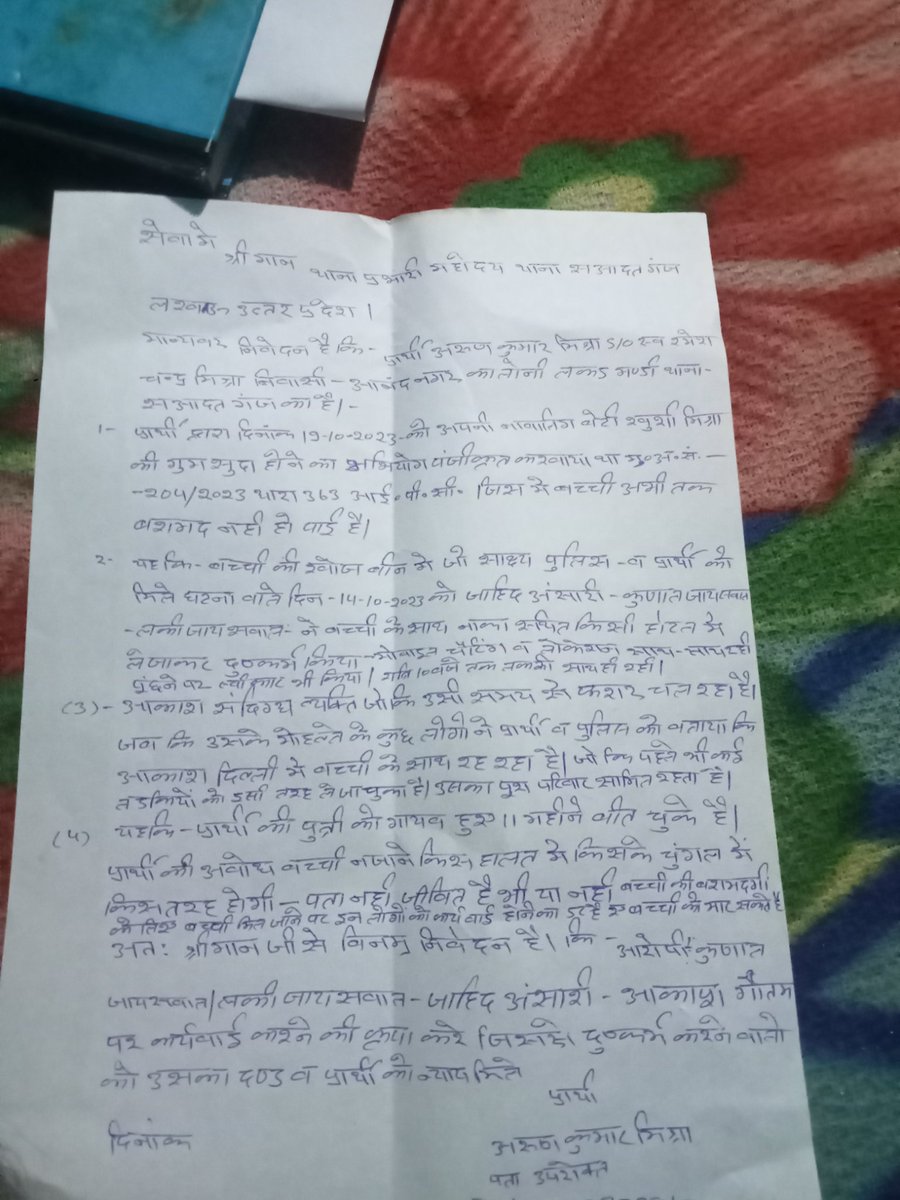 सेवामे
श्रीमान थाना प्रभारी महोदय थाना सआदतगंज
लखनऊ उत्तर प्रदेश।
मान्यवर निवेदन है कि- प्रार्थी अरूण कुमार मिश्रा S/O स्व रमेश
चन्द्र मिश्रा निवासी - आनंद नगर कालोनी लकड मण्डी थाना-
सआदत गंज का है।-
1- प्रार्थी द्वारा दिनांक 19-10-2023-को अपनी नाबालिग बेटी खुशी मिश्रा
की गुम सुदा होने का अभियोग पंजीकृत करवाया था मु०अ०सं० -
-204/2023 धारा 363 आई०पी०सी० जिस मे बच्ची अभी तक
बरामद नही हो पाई है।
2- यह कि- बच्ची की खोज बीन मे जो साक्ष्य पुलिस - व प्रार्थी को
मिले घटना वाले दिन -14-10-2023 को जाहिद अंसारी - कुणाल जायसवाल
-लकी जायसवाल- ने बच्ची के साथ नाका स्थित किसी होटल मे
लेजाकर दुष्कर्म किया मोबाइल चैटिंग व लोकेशन साथ-साथ रही
पूंछने पर भी किया। रात्रि 10 बजे तक साथ ही रही।
(3)- आकाश संदिग्ध व्यक्ति जो कि उसी समय से फरार चल रहा है।
जब कि उसके मोहल्ले के कुछ लोगो ने प्रार्थी व पुलिस को बताया कि
आकाश दिल्ली मे बच्ची के साथ रह रहा है। जो कि पहले भी कई
लडकियो को इसी तरह ले जा चुका है। उसका पूरा परिवार रहता है।
(4) यहकि- प्रार्थी की पुत्री को गायब हुए 11 महीने बीत चुके है।
प्रार्थी की अबोध बच्ची नजाने किस हालत मे किसके चुंगल में
किस तरह होगी - पता नही जीवित है भी या नही बच्ची की बरामदगी
के लिए बच्ची मिल जाने पर इन लोगो को कार्यवाई होने का डर है बच्ची को मार सकते है
अतः श्रीमान जी से विनम्र निवेदन है। कि - आरोपी: कुणाल
जायसवाल/लकी जायसवाल - जाहिद अंसारी - आकाश गौतम
पर कार्यवाई करने की कृपा करे जिससे दुष्कर्म करने वालो
को उसका दण्ड व प्रार्थी को न्याय मिले
प्रार्थी
अरूण कुमार मिश्रा
दिनांक
पता उपरोक्त